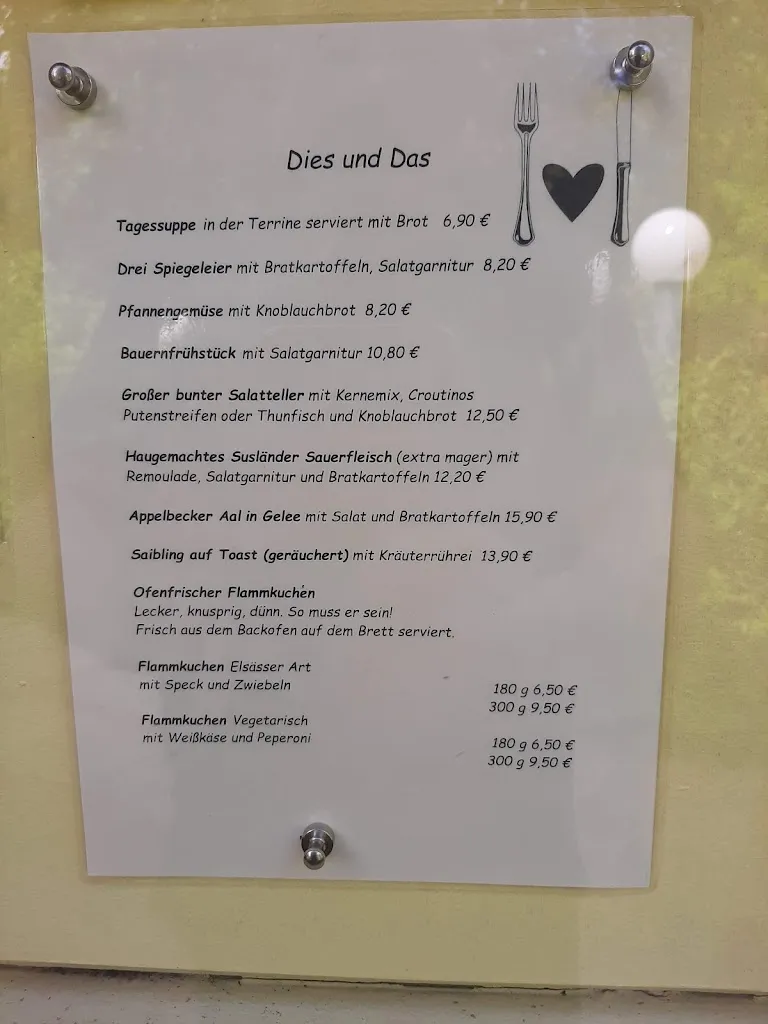 Dies und Das
Tagessuppe in der Terrine serviert mit Brot 6,90 €
Drei Spiegeleier mit Bratkartoffeln, Salatgarnitur 8,20 €
Pfannengemüse mit Knoblauchbrot 8,20 €
Bauernfrühstück mit Salatgarnitur 10,80 €
Großer bunter Salatteller mit Kernemix, Croutinos
Putenstreifen oder Thunfisch und Knoblauchbrot 12,50 €
Haugemachtes Susländer Sauerfleisch (extra mager) mit
Remoulade, Salatgarnitur und Bratkartoffeln 12,20 €
Appelbecker Aal in Gelee mit Salat und Bratkartoffeln 15,90 €
Saibling auf Toast (geräuchert) mit Kräuterrührei 13,90 €
Ofenfrischer Flammkuchen
Lecker, knusprig, dünn. So muss er sein!
Frisch aus dem Backofen auf dem Brett serviert.
Flammkuchen Elsässer Art
mit Speck und Zwiebeln
180 g 6,50 €
300 g 9,50 €
Flammkuchen Vegetarisch
mit Weißkäse und Peperoni
180 g 6,50 €
300 g 9,50 €